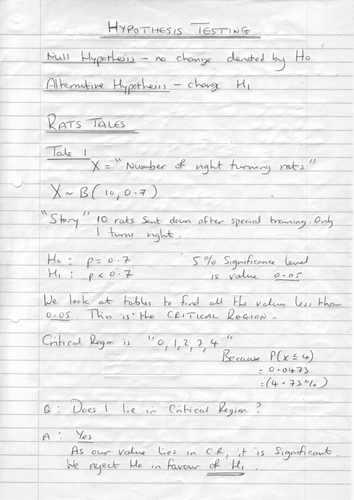 HYPOTHESIS TESTING
Null Hypothesis – no change denoted by H0
Alternative Hypothesis – change H1
RATS TALES
Tale 1
X = "Number of right turning rats"
X ~ B(10, 0.7)
"Story" 10 rats sent down after special training. Only
1 turns right.
H0: p = 0.7 5% Significance level
H1: p < 0.7 is value 0.05
We look at tables to find all the values less than
0.05. This is the CRITICAL REGION.
Critical Region is "0,1,2,3,4"
Because P(X ≤ 4)
= 0.0473
= (4.73%)
Q: Does 1 lie in Critical Region?
A: Yes
As our value lies in C.R, it is significant.
We reject H0 in favour of H1.